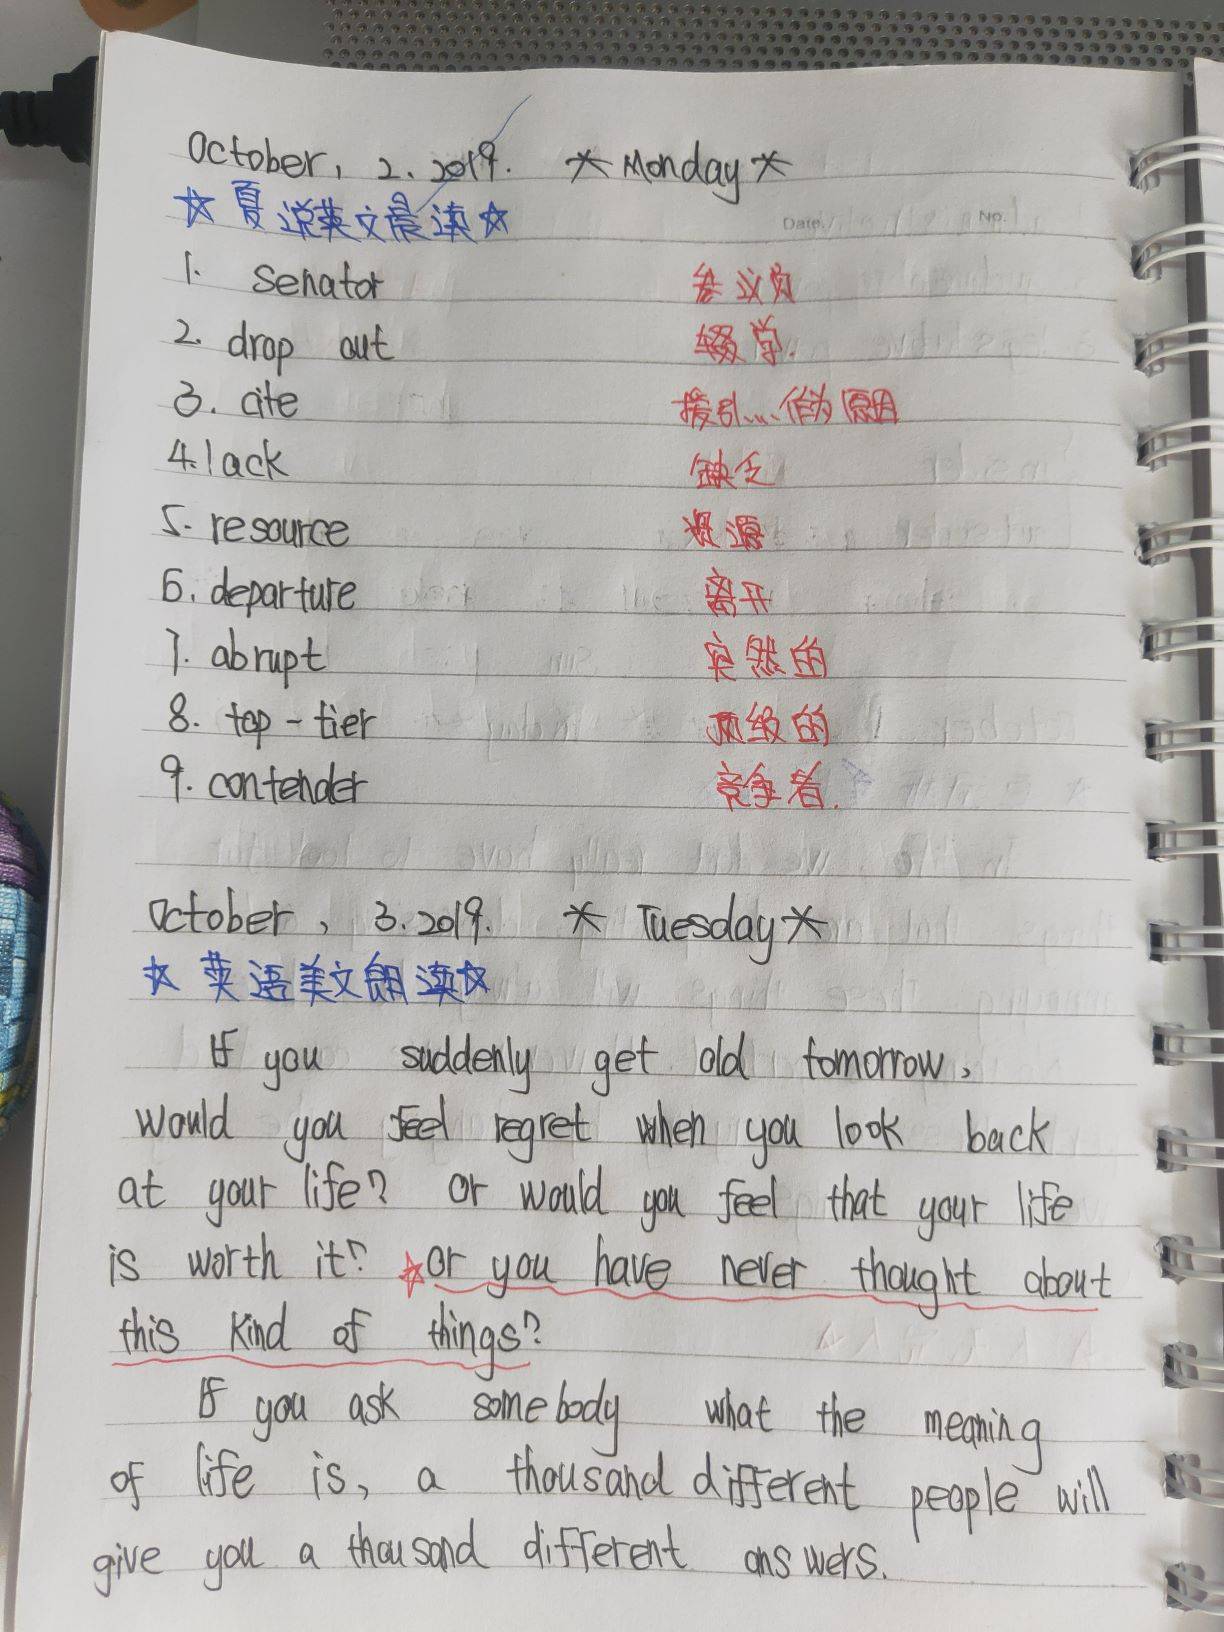 October, 2. 2019. *Monday*
☆夏说英文晨读☆
Date. No.
1. senator 参议员
2. drop out 辍学.
3. cite 援引....作为原因
4. lack 缺乏
5. resource 资源
6. departure 离开
7. abrupt 突然的
8. top-tier 顶级的
9. contender 竞争者.
October, 3. 2019. * Tuesday*
☆英语美文朗读☆
If you suddenly get old tomorrow,
would you feel regret when you look back
at your life? or would you feel that your life
is worth it? ☆or you have never thought about
this kind of things?
If you ask somebody what the meaning
of life is, a thousand different people will
give you a thousand different answers.